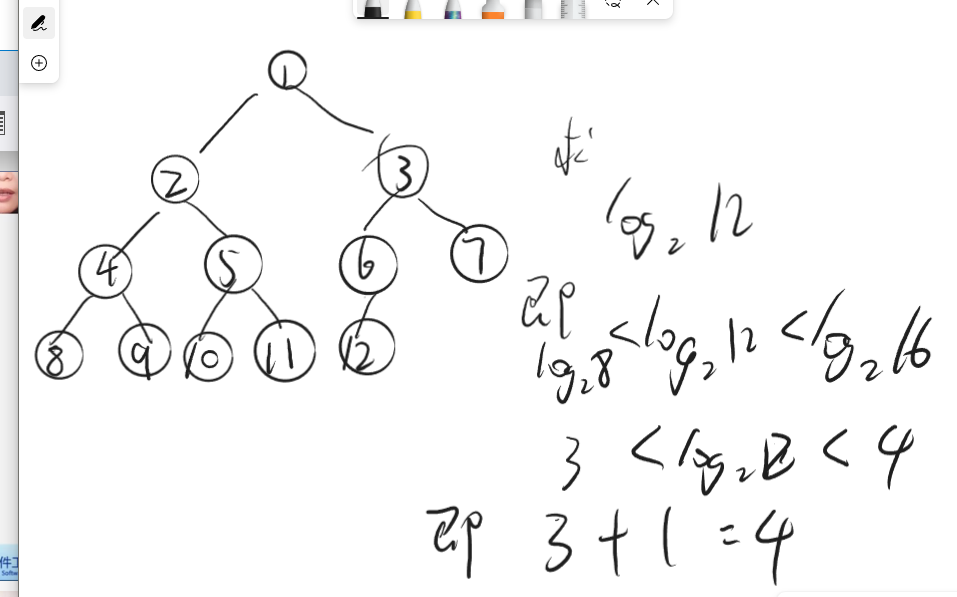 1
2 3
4 5 6 7
8 9 10 11 12
求
log₂12
即
log₂8 < log₂12 < log₂16
3 < log₂12 < 4
即 3 + 1 = 4
件工